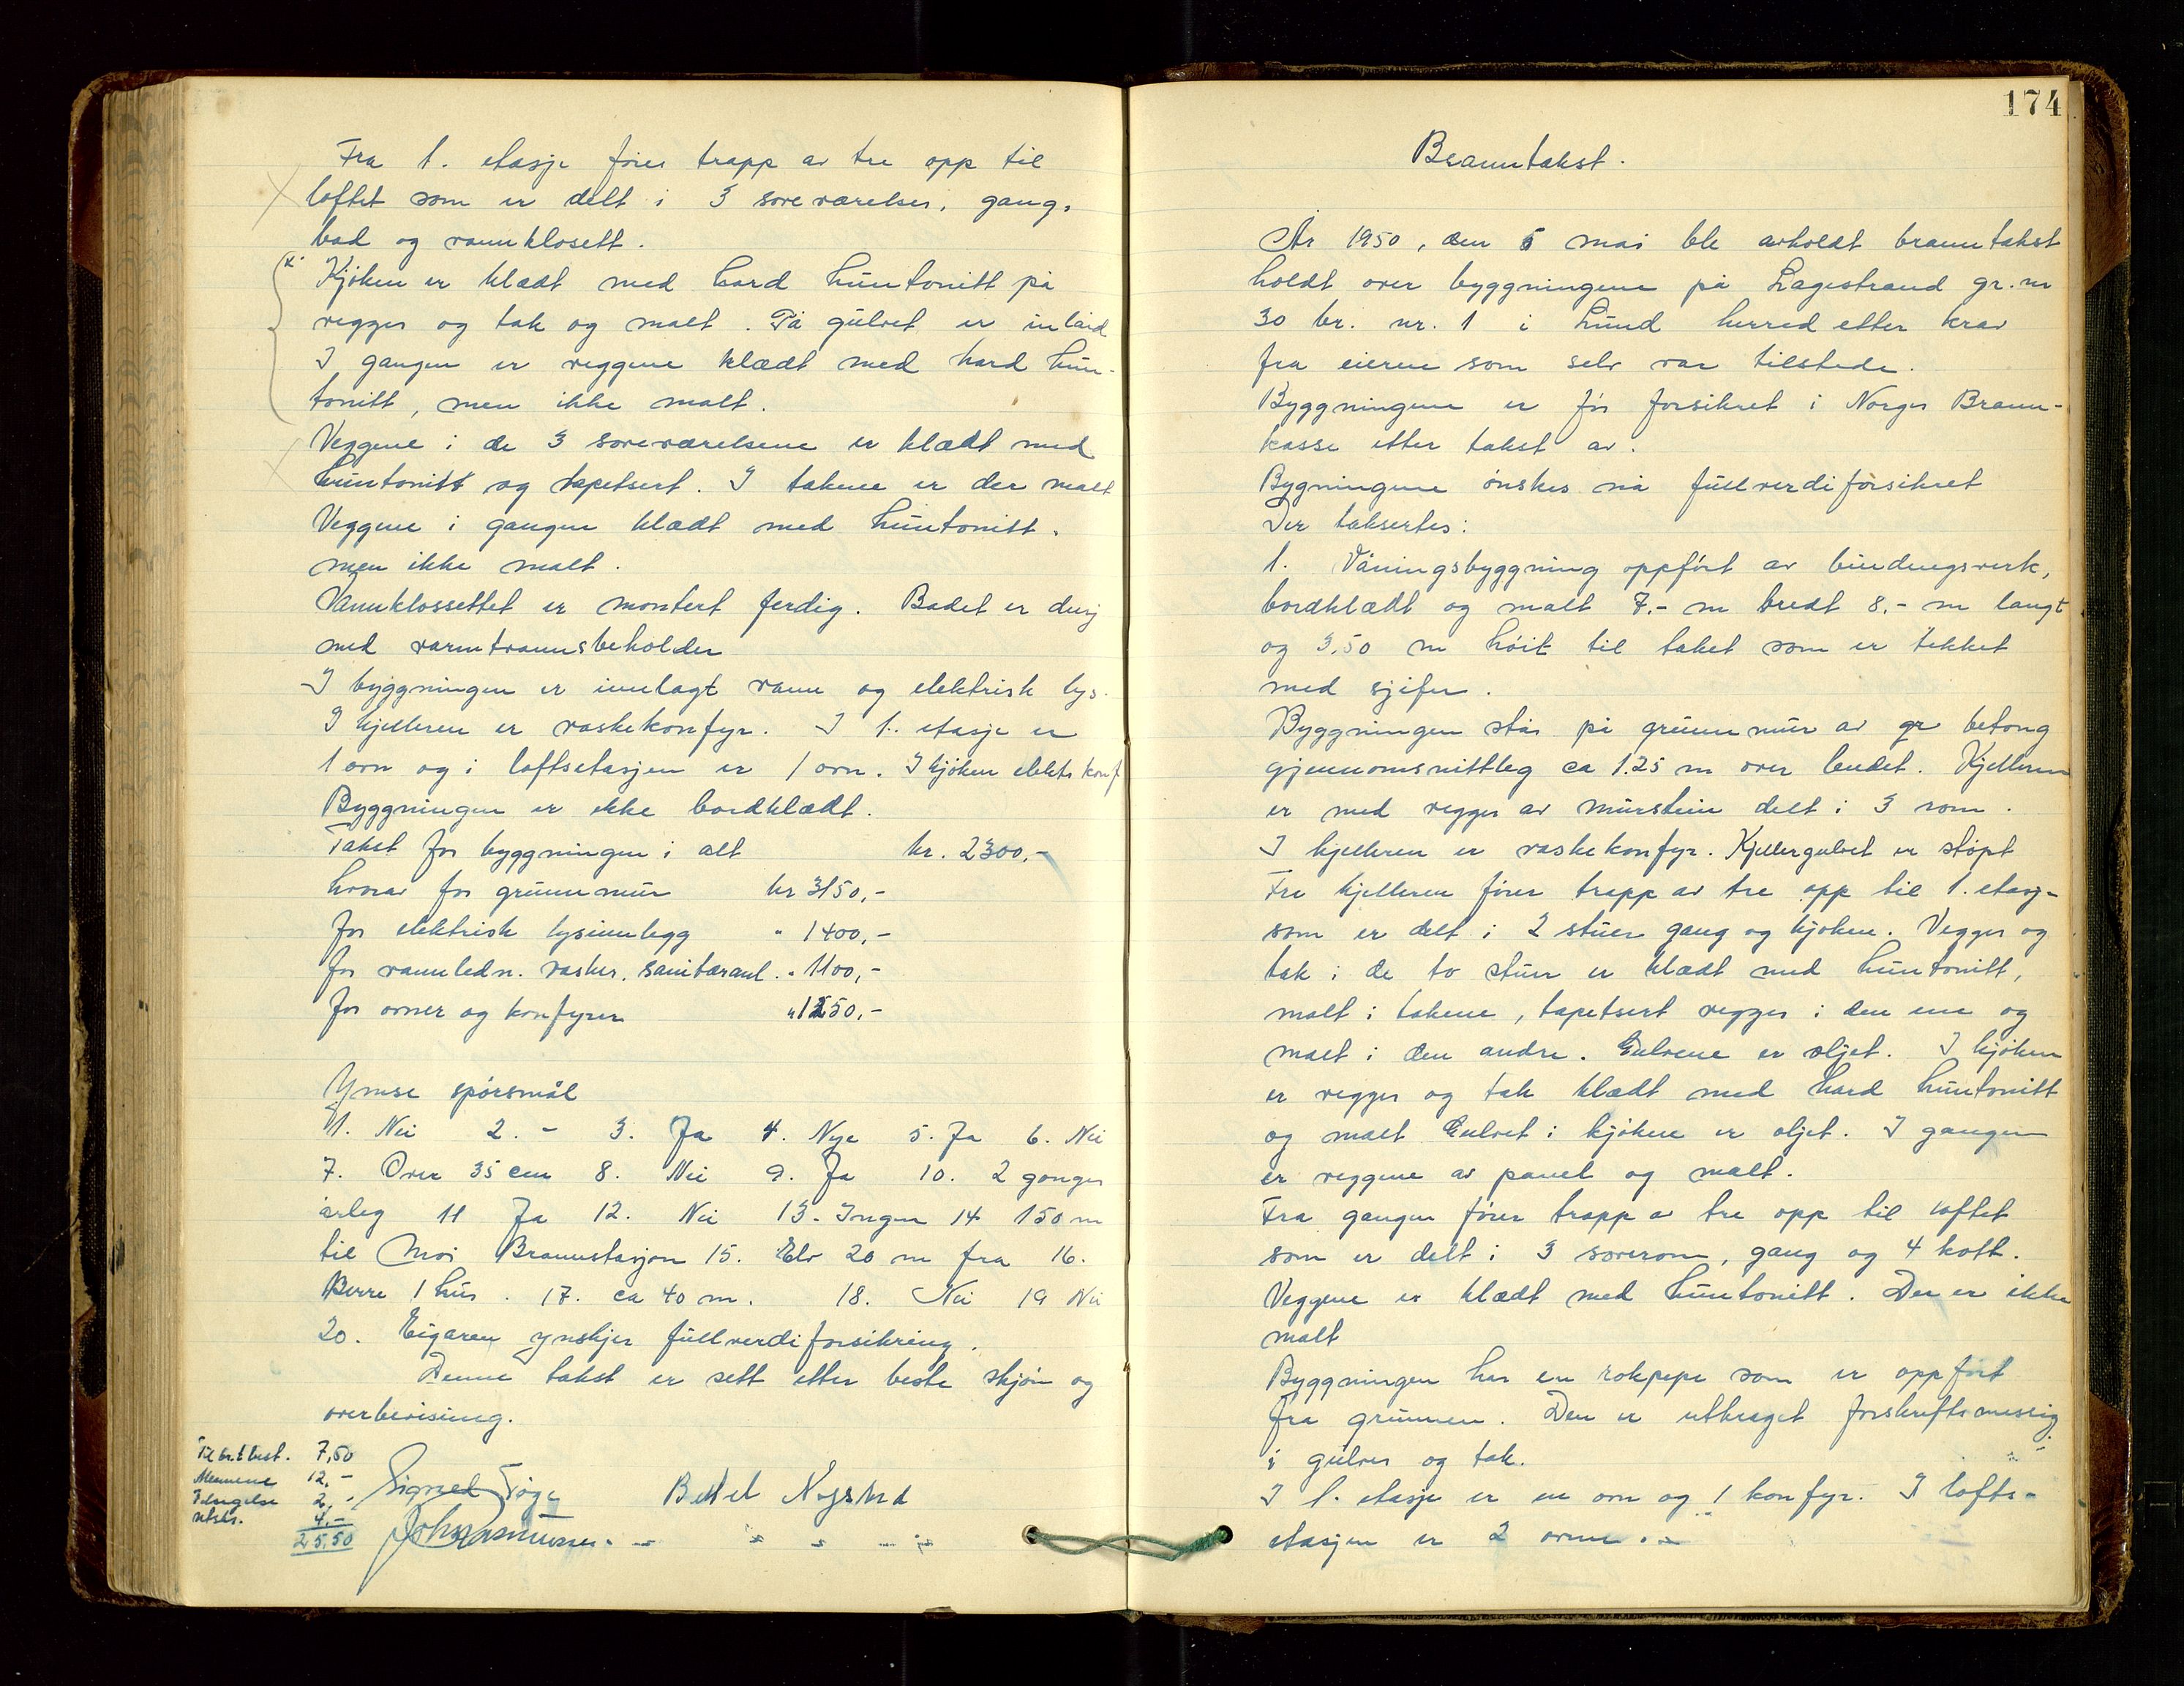 Fra 1. etasje fører trapp av tre opp til
loftet som er delt i 3 soveværelser, gang,
bad og vannklosett.
Kjøken er klædt med hard huntonitt på
vegger og tak og malt. På gulvet er inlaid
I gangen er veggene klædt med hard hun-
tonitt, men ikke malt.
Veggene i de 3 soveværelsene er klædt med
huntonitt og tapetsert. I takene er der malt
Veggene i gangen klædt med huntonitt,
men ikke malt.
Vannklossettet er montert ferdig. Badet er dusj
med varmtvannsbeholder
I byggningen er innlagt vann og elektrisk lys.
I kjelleren er vaskekomfyr. I 1. etasje er
1 ovn og i loftsetasjen er 1 ovn. I kjøken elektr. komf
Byggningen er ikke bordklædt.
Takst for byggningen i alt kr. 2300,-
hvorav for grunnmur kr 3150,-
for elektrisk lysinnlegg " 1400,-
for vannledn. vasker, sanitæranl. " 1100,-
for ovner og komfyrer " 1250,-
Ymse spørsmål
1. Nei 2. - 3. Ja 4. Nye 5. Ja 6. Nei
7. Over 35 cm 8. Nei 9. Ja 10. 2 gonger
årleg 11 Ja 12. Nei 13. Ingen 14 150 m
til Moi Brannstasjon 15. Elv 20 m fra 16.
Berre 1 hus. 17. ca 40 m. 18. Nei 19 Nei
20. Eigaren ynskjer fullverdiforsikring.
Denne takst er sett etter beste skjøn og
overbevisning.
Til br.t best. 7,50
Mennene 12,-
2,-
utskr. 4,-
25,50
Sigved Bertel Nygård
John Rasmussen
174
Branntakst.
År 1950, den 5 mai ble avholdt branntakst
holdt over byggningene på Lagestrand gr. nr
30 br. nr. 1 i Lund herred etter krav
fra eieren som selv var tilstede.
Byggningene er før forsikret i Norges Brann-
kasse etter takst av.
Bygningene ønskes nå fullverdiforsikret
Der taksertes:
1. Våningsbyggning oppført av bindingsverk,
bordklædt og malt 7,- m bredt 8,- m langt
og 3,50 m høit til taket som er tekket
med sjifer.
Byggningen står på grunnmur av gr betong
gjennomsnittleg ca 1.25 m over lendet. Kjelleren
er med vegger av murstein delt i 3 rom.
I kjelleren er vaskekomfyr. Kjellergulvet er støpt
Fra kjelleren fører trapp av tre opp til 1. etasj-
som er delt i 2 stuer gang og kjøken. Vegger og
tak i de to stuer er klædt med huntonitt,
malt i takene, tapetsert vegger i den ene og
malt i den andre. Gulvene er oljet. I kjøken
er vegger og tak klædt med hard huntonitt
og malt Gulvet i kjøken er oljet. I gangen
er veggene av panel og malt.
Fra gangen fører trapp av tre opp til loftet
som er delt i 3 soverom, gang og 4 kott.
Veggene er klædt med huntonitt. Der er ikke
malt
Byggningen har en rokpipe som er oppført
fra grunnen. Den er utkraget forskriftsmessig
i gulver og tak.
I 1. etasje er en ovn og 1 komfyr. I lofts-
etasjen er 2 ovner.